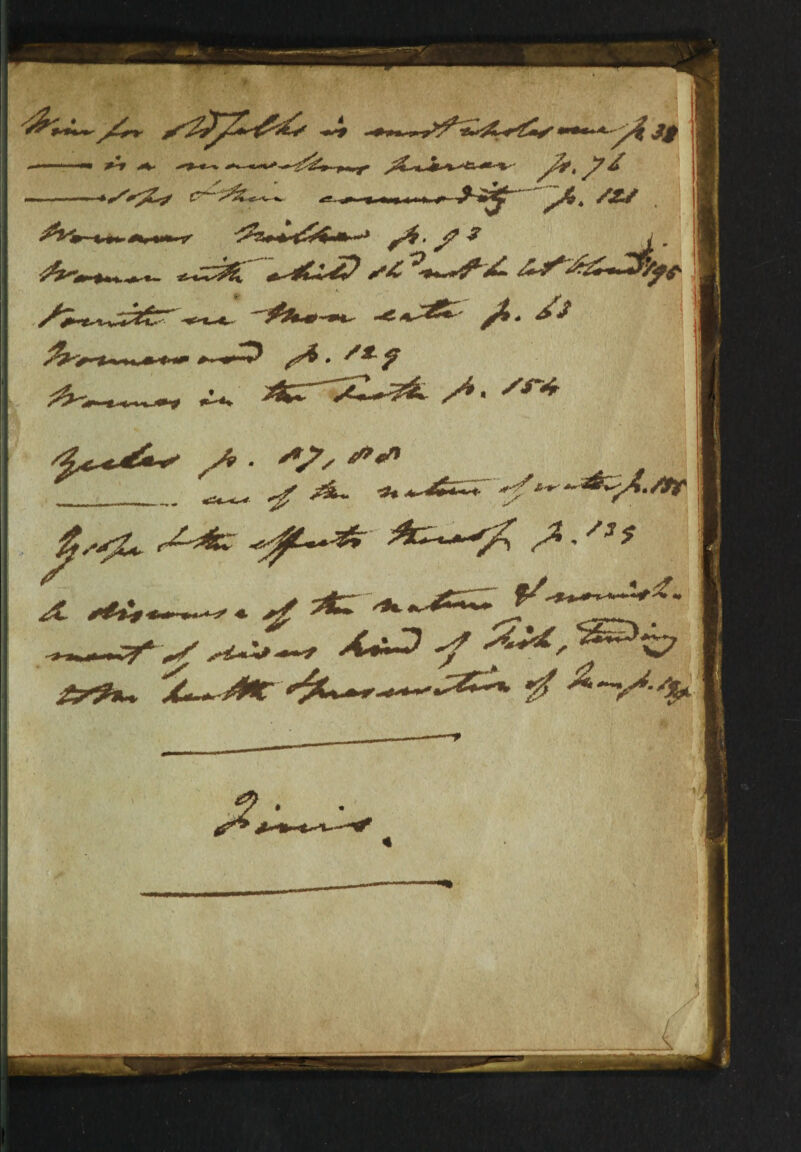 Wine for old folks is most wholesome p 38
—— is a marvellous piercer p. 76
—— sops & their commodity p. 121
Womans Milke p. 93
Woman with child shd not be let bloud p 195
Vomite ere thou eate p. 63
Wormewood p. 129
Wormes in the teeth p. 154
p. 87, 88
—— are of the nature of water p.
& the effects thereof p. 139
A discourse of the nature & nourish-
ment of divers kind of Fish, tending
to the health & preservation of Man p.
Finis.